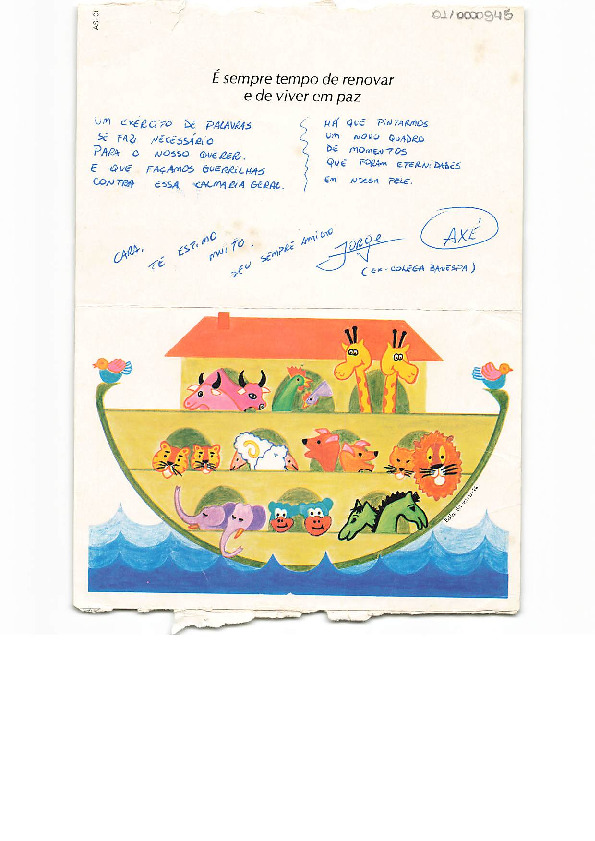 AS. 01
01/0000945
É sempre tempo de renovar
e de viver em paz
UM EXERCITO DE PALAVRAS
SE FAZ NECESSÁRIO
PARA O NOSSO QUERER.
E QUE FAÇAMOS GUERRILHAS
CONTRA ESSA CALMARIA GERAL.
HÁ QUE PINTARMOS
UM NOVO QUADRO
DE MOMENTOS
QUE FORAM ETERNIDADES
EM NOSSA PELE.
CARA,
TE ESTIMO
MUITO.
SEU SEMPRE AMIGO
JORGE
AXÉ
(EX-COLEGA BANESPA)